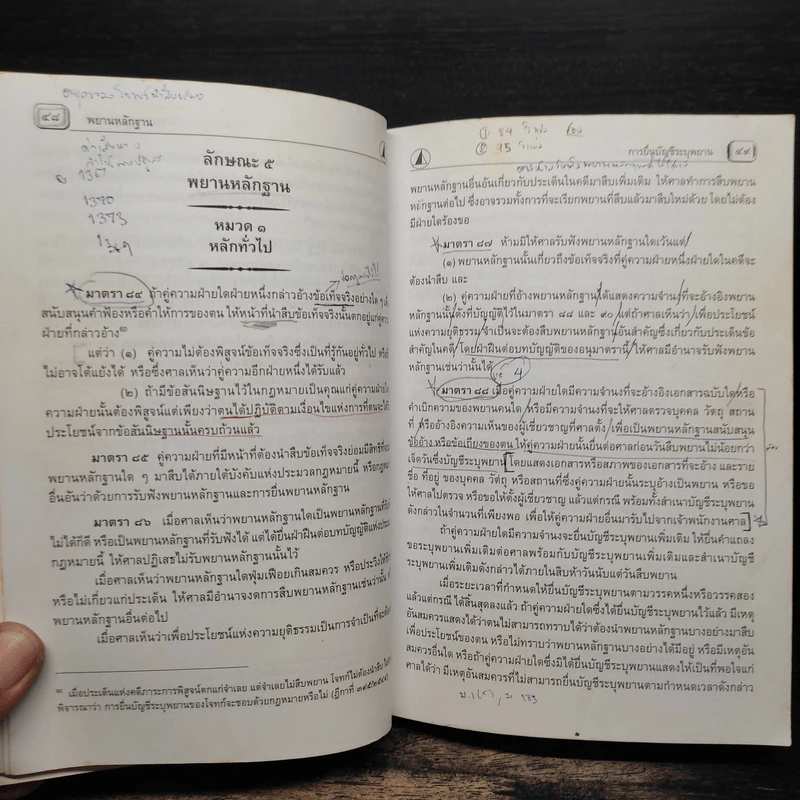 ๔๘ พยานหลักฐาน
1367
1370
1373
ลักษณะ ๕
พยานหลักฐาน
หมวด ๑
หลักทั่วไป
มาตรา ๘๔ ถ้าคู่ความฝ่ายใดฝ่ายหนึ่งกล่าวอ้างข้อเท็จจริงอย่างใด ๆ
สนับสนุนคำฟ้องหรือคำให้การของตน ให้หน้าที่นำสืบข้อเท็จจริงนั้นตกอยู่แก่คู่ความ
ฝ่ายที่กล่าวอ้าง
แต่ว่า (๑) คู่ความไม่ต้องพิสูจน์ข้อเท็จจริงซึ่งเป็นที่รู้กันอยู่ทั่วไป
ไม่อาจโต้แย้งได้ หรือซึ่งศาลเห็นว่าคู่ความอีกฝ่ายหนึ่งได้รับแล้ว
(๒) ถ้ามีข้อสันนิษฐานไว้ในกฎหมายเป็นคุณแก่คู่ความฝ่ายใด
ความฝ่ายนั้นต้องพิสูจน์แต่เพียงว่าตนได้ปฏิบัติตามเงื่อนไขแห่งการที่ตนจะได้
ประโยชน์จากข้อสันนิษฐานนั้นครบถ้วนแล้ว
มาตรา ๘๕ คู่ความฝ่ายที่มีหน้าที่ต้องนำสืบข้อเท็จจริงย่อมมีสิทธิที่จะ
พยานหลักฐานใด ๆ มาสืบได้ภายใต้บังคับแห่งประมวลกฎหมายนี้ หรือกฎหมาย
อื่นอันว่าด้วยการรับฟังพยานหลักฐานและการยื่นพยานหลักฐาน
มาตรา ๘๖ เมื่อศาลเห็นว่าพยานหลักฐานใดเป็นพยานหลักฐานที่รับฟัง
ไม่ได้ก็ดี หรือเป็นพยานหลักฐานที่รับฟังได้ แต่ได้ยื่นฝ่าฝืนต่อบทบัญญัติแห่งประมวล
กฎหมายนี้ ให้ศาลปฏิเสธไม่รับพยานหลักฐานนั้นไว้
เมื่อศาลเห็นว่าพยานหลักฐานใดฟุ่มเฟือยเกินสมควร หรือประวิงให้ชักช้า
หรือไม่เกี่ยวแก่ประเด็น ให้ศาลมีอำนาจงดการสืบพยานหลักฐานเช่นว่านั้น
พยานหลักฐานอื่นต่อไป
เมื่อศาลเห็นว่าเพื่อประโยชน์แห่งความยุติธรรมเป็นการจำเป็นที่จะต้อง
เมื่อประเด็นแห่งคดีภาระการพิสูจน์ตกแก่จำเลย แต่จำเลยไม่สืบพยาน โจทก์ไม่ต้องนำสืบ
พิจารณาว่า การยื่นบัญชีระบุพยานของโจทก์จะชอบด้วยกฎหมายหรือไม่
84
95
การยื่นบัญชีระบุพยาน ๔๙
พยานหลักฐานอื่นอันเกี่ยวกับประเด็นในคดีมาสืบเพิ่มเติม ให้ศาลทำการสืบพยาน
หลักฐานต่อไป ซึ่งอาจรวมทั้งการที่จะเรียกพยานที่สืบแล้วมาสืบใหม่ด้วย โดยไม่ต้อง
มีฝ่ายใดร้องขอ
มาตรา ๘๗ ห้ามมิให้ศาลรับฟังพยานหลักฐานใดเว้นแต่
(๑) พยานหลักฐานนั้นเกี่ยวถึงข้อเท็จจริงที่คู่ความฝ่ายหนึ่งฝ่ายใดในคดีจะ
ต้องนำสืบ และ
(๒) คู่ความฝ่ายที่อ้างพยานหลักฐานได้แสดงความจำนงที่จะอ้างอิงพยาน
หลักฐานนั้นดังที่บัญญัติไว้ในมาตรา ๘๘ และ ๙๐ แต่ถ้าศาลเห็นว่า เพื่อประโยชน์
แห่งความยุติธรรม จำเป็นจะต้องสืบพยานหลักฐานอันสำคัญซึ่งเกี่ยวกับประเด็นข้อ
สำคัญในคดี โดยฝ่าฝืนต่อบทบัญญัติของอนุมาตรานี้ ให้ศาลมีอำนาจรับฟังพยาน
หลักฐานเช่นว่านั้นได้
มาตรา ๘๘ เมื่อคู่ความฝ่ายใดมีความจำนงที่จะอ้างอิงเอกสารฉบับใดหรือ
คำเบิกความของพยานคนใด หรือมีความจำนงที่จะให้ศาลตรวจบุคคล วัตถุ สถาน
ที่ หรืออ้างอิงความเห็นของผู้เชี่ยวชาญที่ศาลตั้ง เพื่อเป็นพยานหลักฐานสนับสนุน
ข้ออ้าง หรือข้อเถียงของตน ให้คู่ความฝ่ายนั้นยื่นต่อศาลก่อนวันสืบพยานไม่น้อยกว่า
เจ็ดวันซึ่งบัญชีระบุพยาน โดยแสดงเอกสารหรือสภาพของเอกสารที่จะอ้าง และราย
ชื่อ ที่อยู่ ของบุคคล วัตถุ หรือสถานที่ซึ่งคู่ความฝ่ายนั้นระบุอ้างเป็นพยาน หรือขอ
ให้ศาลไปตรวจ หรือขอให้ตั้งผู้เชี่ยวชาญ แล้วแต่กรณี พร้อมทั้งสำเนาบัญชีระบุพยาน
ดังกล่าวในจำนวนที่เพียงพอ เพื่อให้คู่ความฝ่ายอื่นมารับไปจากเจ้าพนักงานศาล
ถ้าคู่ความฝ่ายใดมีความจำนงจะยื่นบัญชีระบุพยานเพิ่มเติม ให้ยื่นคำแถลง
ขอระบุพยานเพิ่มเติมต่อศาลพร้อมกับบัญชีระบุพยานเพิ่มเติมและสำเนาบัญชี
ระบุพยานเพิ่มเติมดังกล่าวได้ ภายในสิบห้าวันนับแต่วันสืบพยาน
เมื่อระยะเวลาที่กำหนดให้ยื่นบัญชีระบุพยานตามวรรคหนึ่งหรือวรรคสอง
แล้วแต่กรณี ได้สิ้นสุดลงแล้ว ถ้าคู่ความฝ่ายใดซึ่งได้ยื่นบัญชีระบุพยานไว้แล้ว มีเหตุ
อันสมควรแสดงได้ว่าตนไม่สามารถทราบได้ว่าต้องนำพยานหลักฐานบางอย่างมาสืบ
เพื่อประโยชน์ของตน หรือไม่ทราบว่าพยานหลักฐานบางอย่างได้มีอยู่ หรือมีเหตุอัน
สมควรอื่นใด หรือถ้าคู่ความฝ่ายใดซึ่งมิได้ยื่นบัญชีระบุพยานแสดงให้เป็นที่พอใจแก่
ศาลได้ว่า มีเหตุอันสมควรที่ไม่สามารถยื่นบัญชีระบุพยานตามกำหนดเวลาดังกล่าว